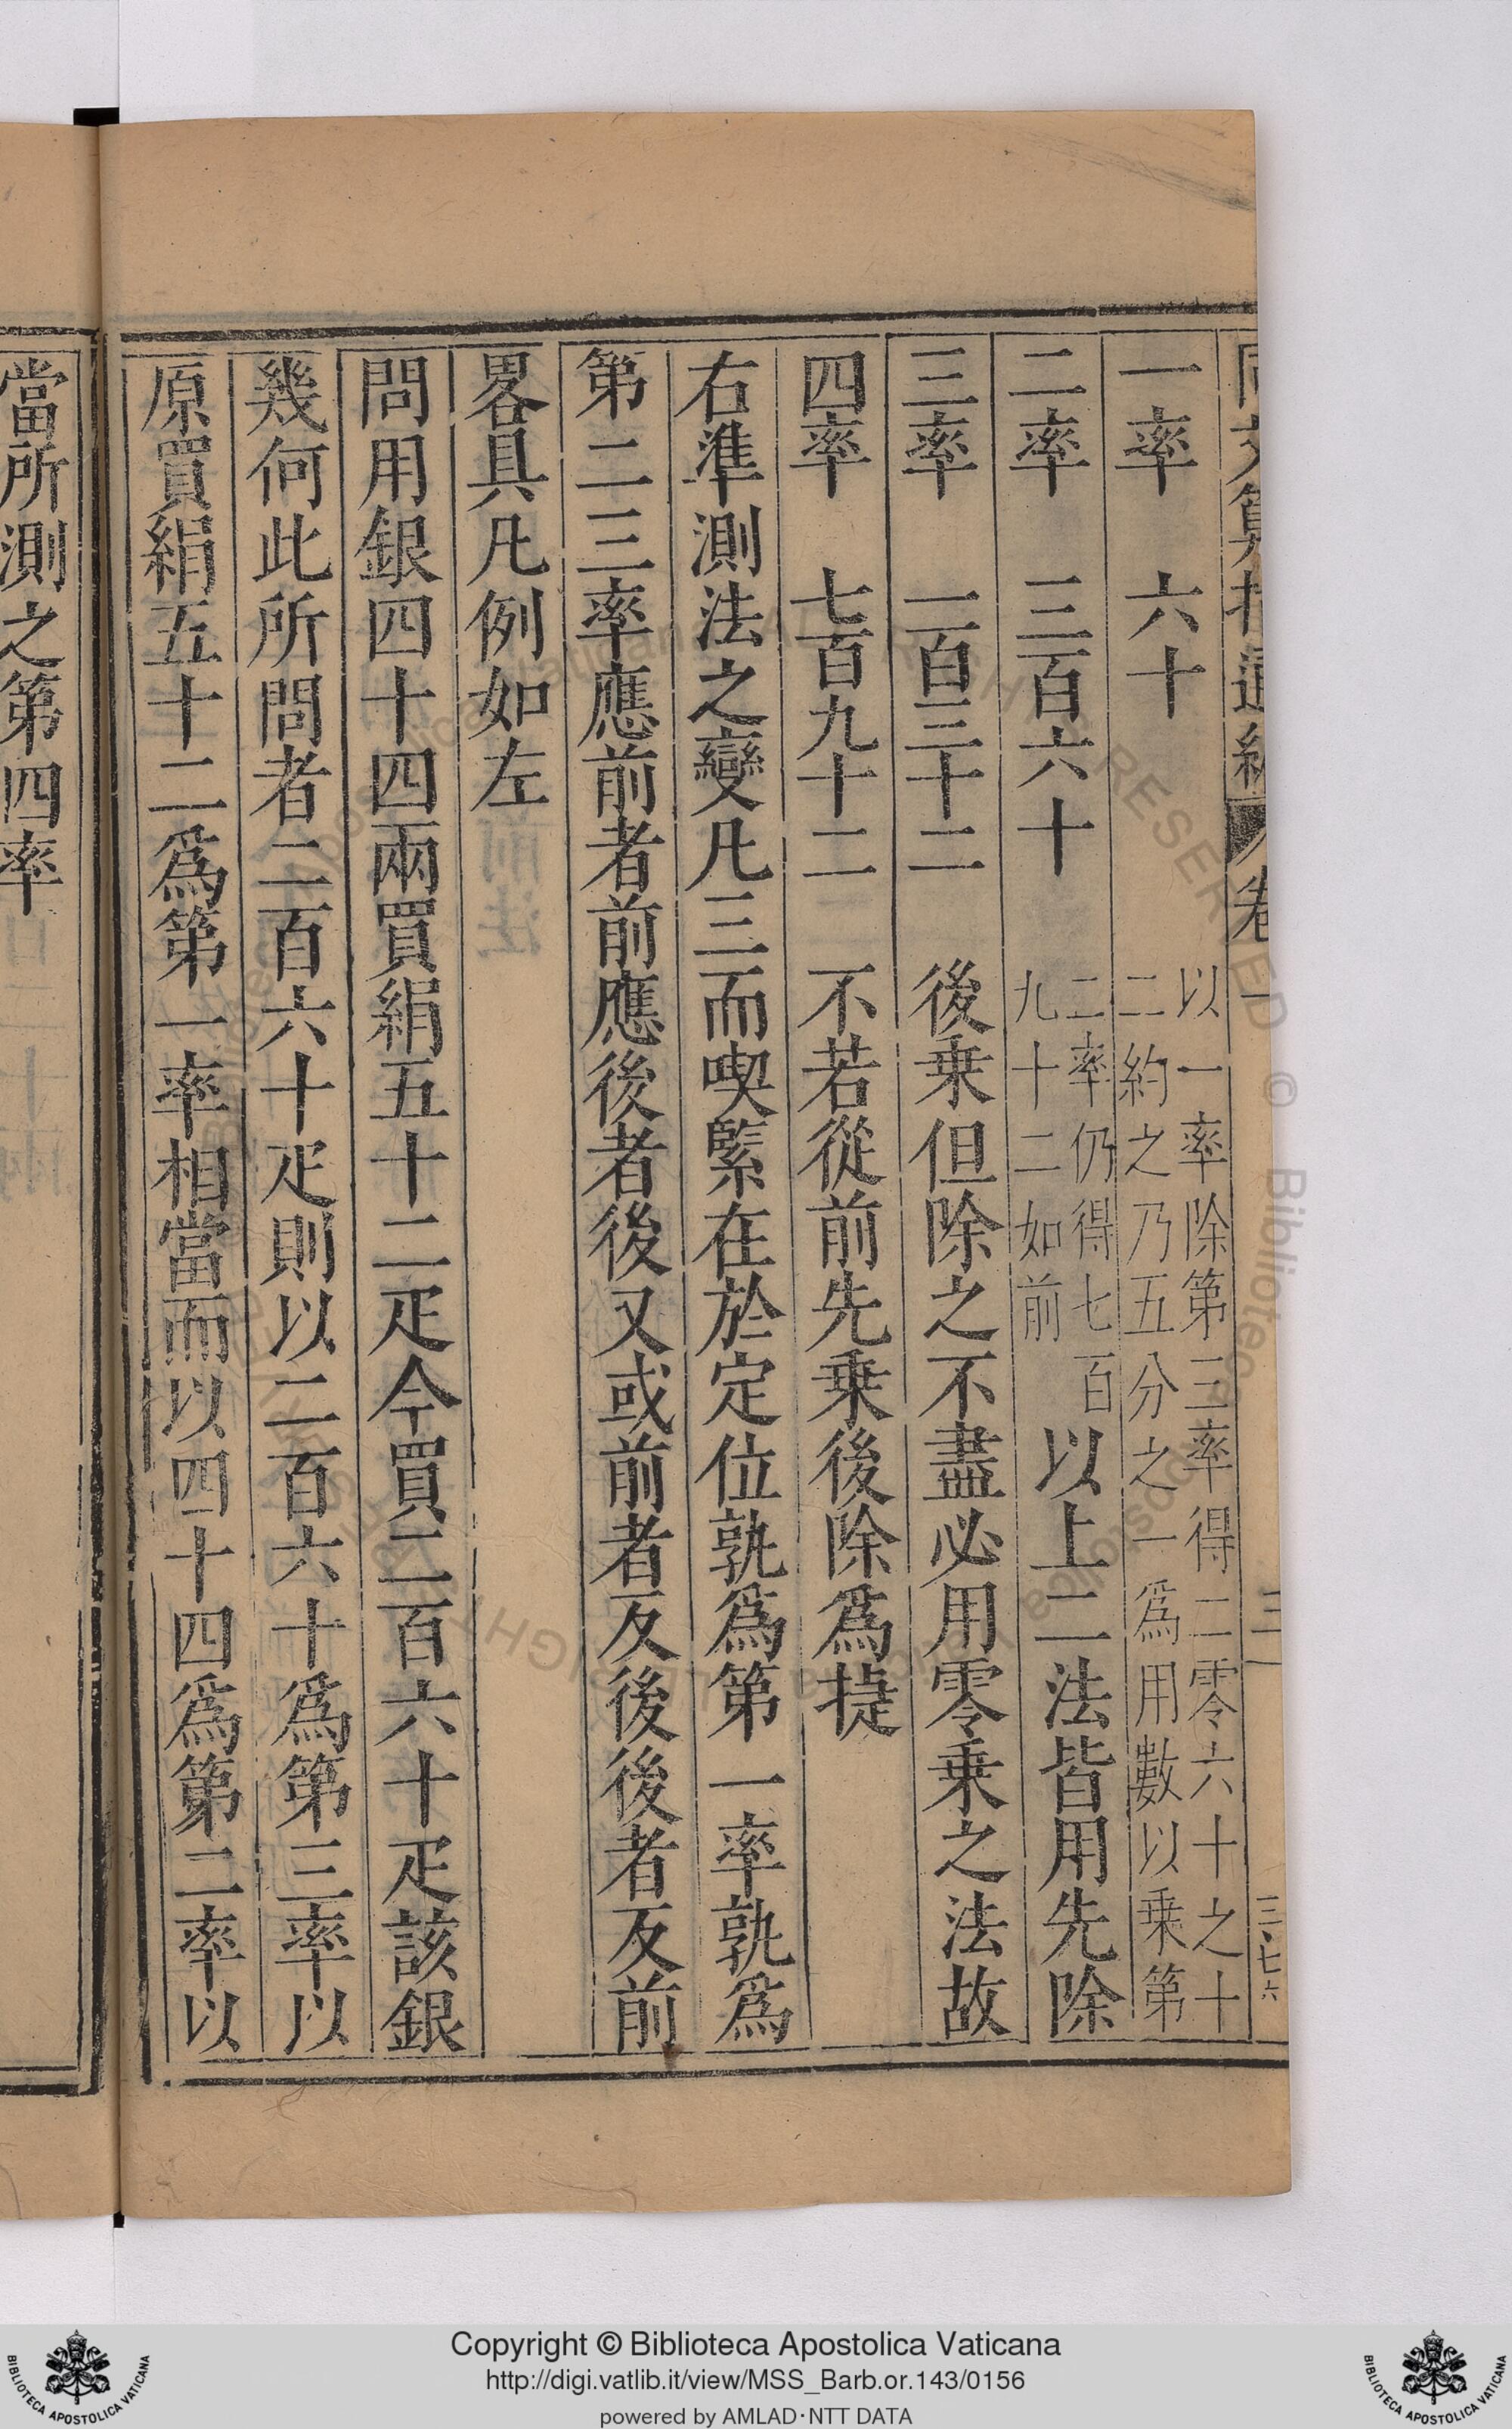 同文算指通編 卷一 三 三七六
一率 六十 以一率除第三率得二零六十之十
二約之乃五分之一為用數以乗第
二率 三百六十 二率仍得七百
九十二如前 以上二法皆用先除
三率 一百三十二 後乗但除之不盡必用零乗之法故
四率 七百九十二 不若從前先乗後除爲㨗
右準測法之變凡三而喫緊在於定位孰爲第一率孰爲
第二三率應前者前應後者後又或前者反後後者反前
畧具凡例如左
問用銀四十四兩買絹五十二疋今買二百六十疋該銀
幾何此所問者二百六十疋則以二百六十爲第三率以
原買絹五十二爲第一率相當而以四十四爲第二率以
當所測之第四率
Copyright © Biblioteca Apostolica Vaticana
http://digi.vatlib.it/view/MSS_Barb.or.143/0156
powered by AMLAD·NTT DATA
BIBLIOTECA APOSTOLICA VATICANA
BIBLIOTECA APOSTOLICA VATICANA